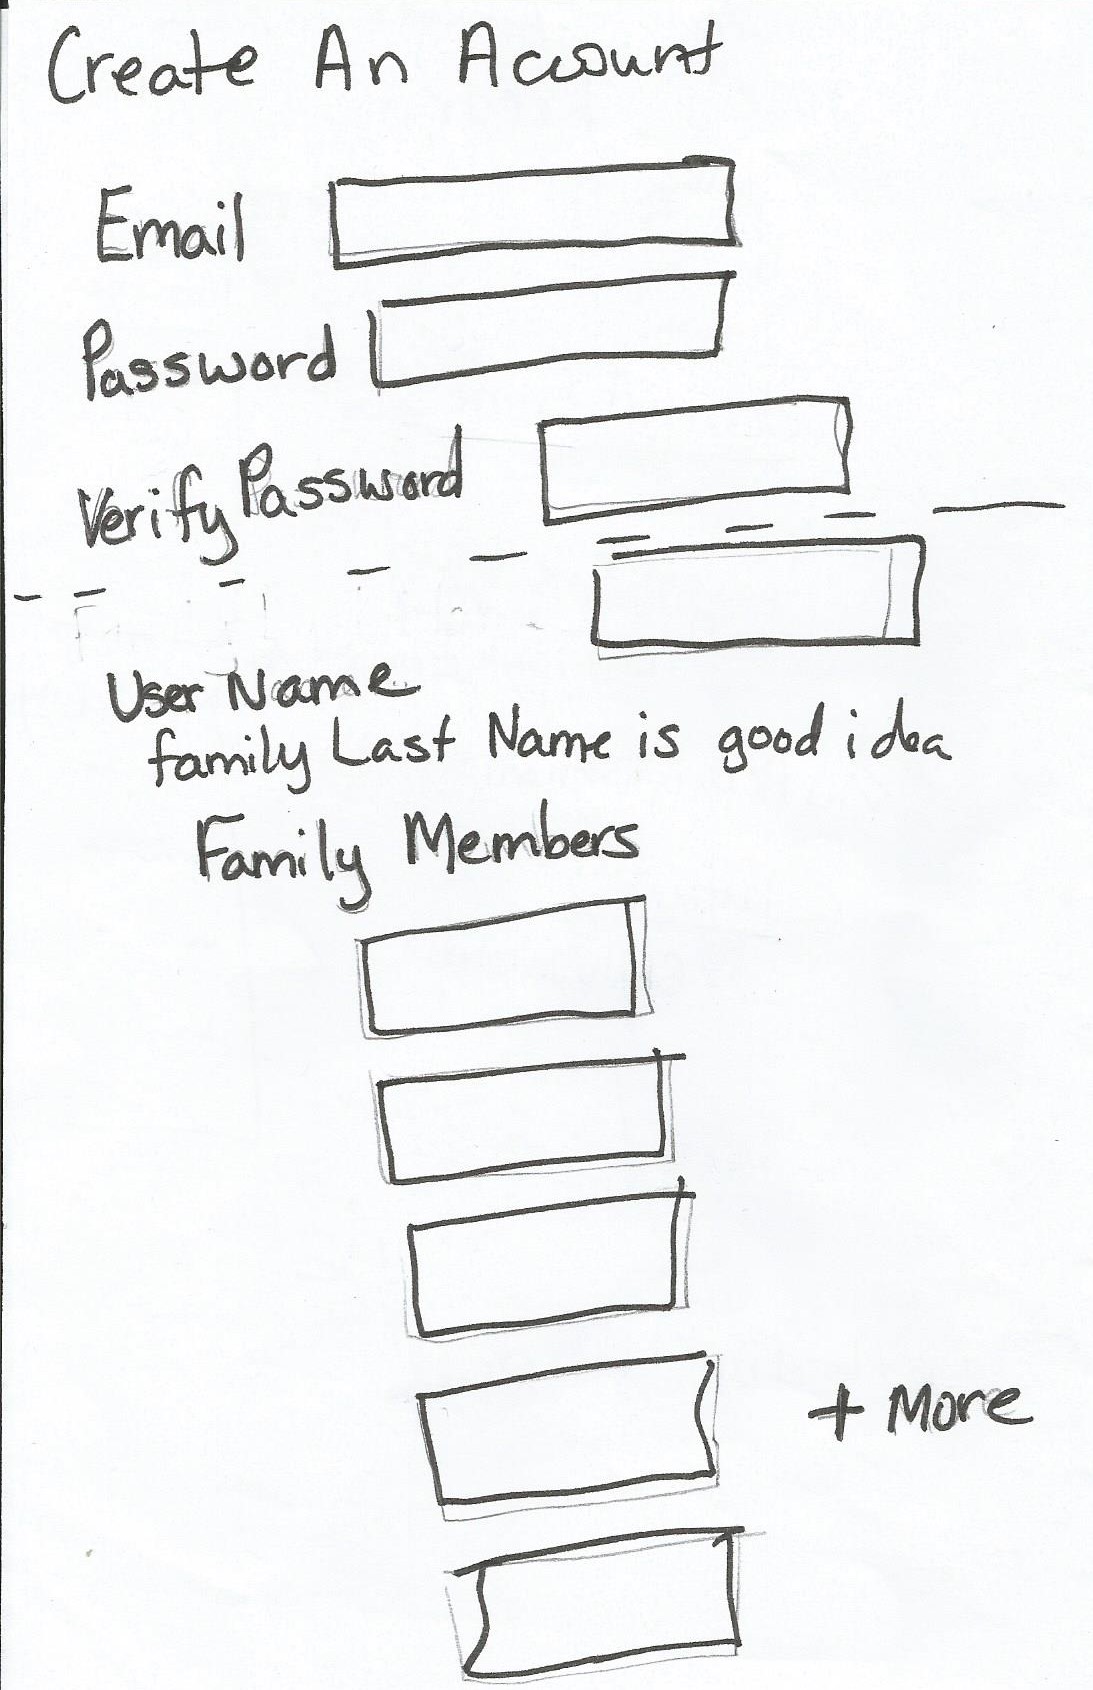 Create An Account
Email
Password
Verify Password
User Name
family Last Name is good idea
Family Members
+ More